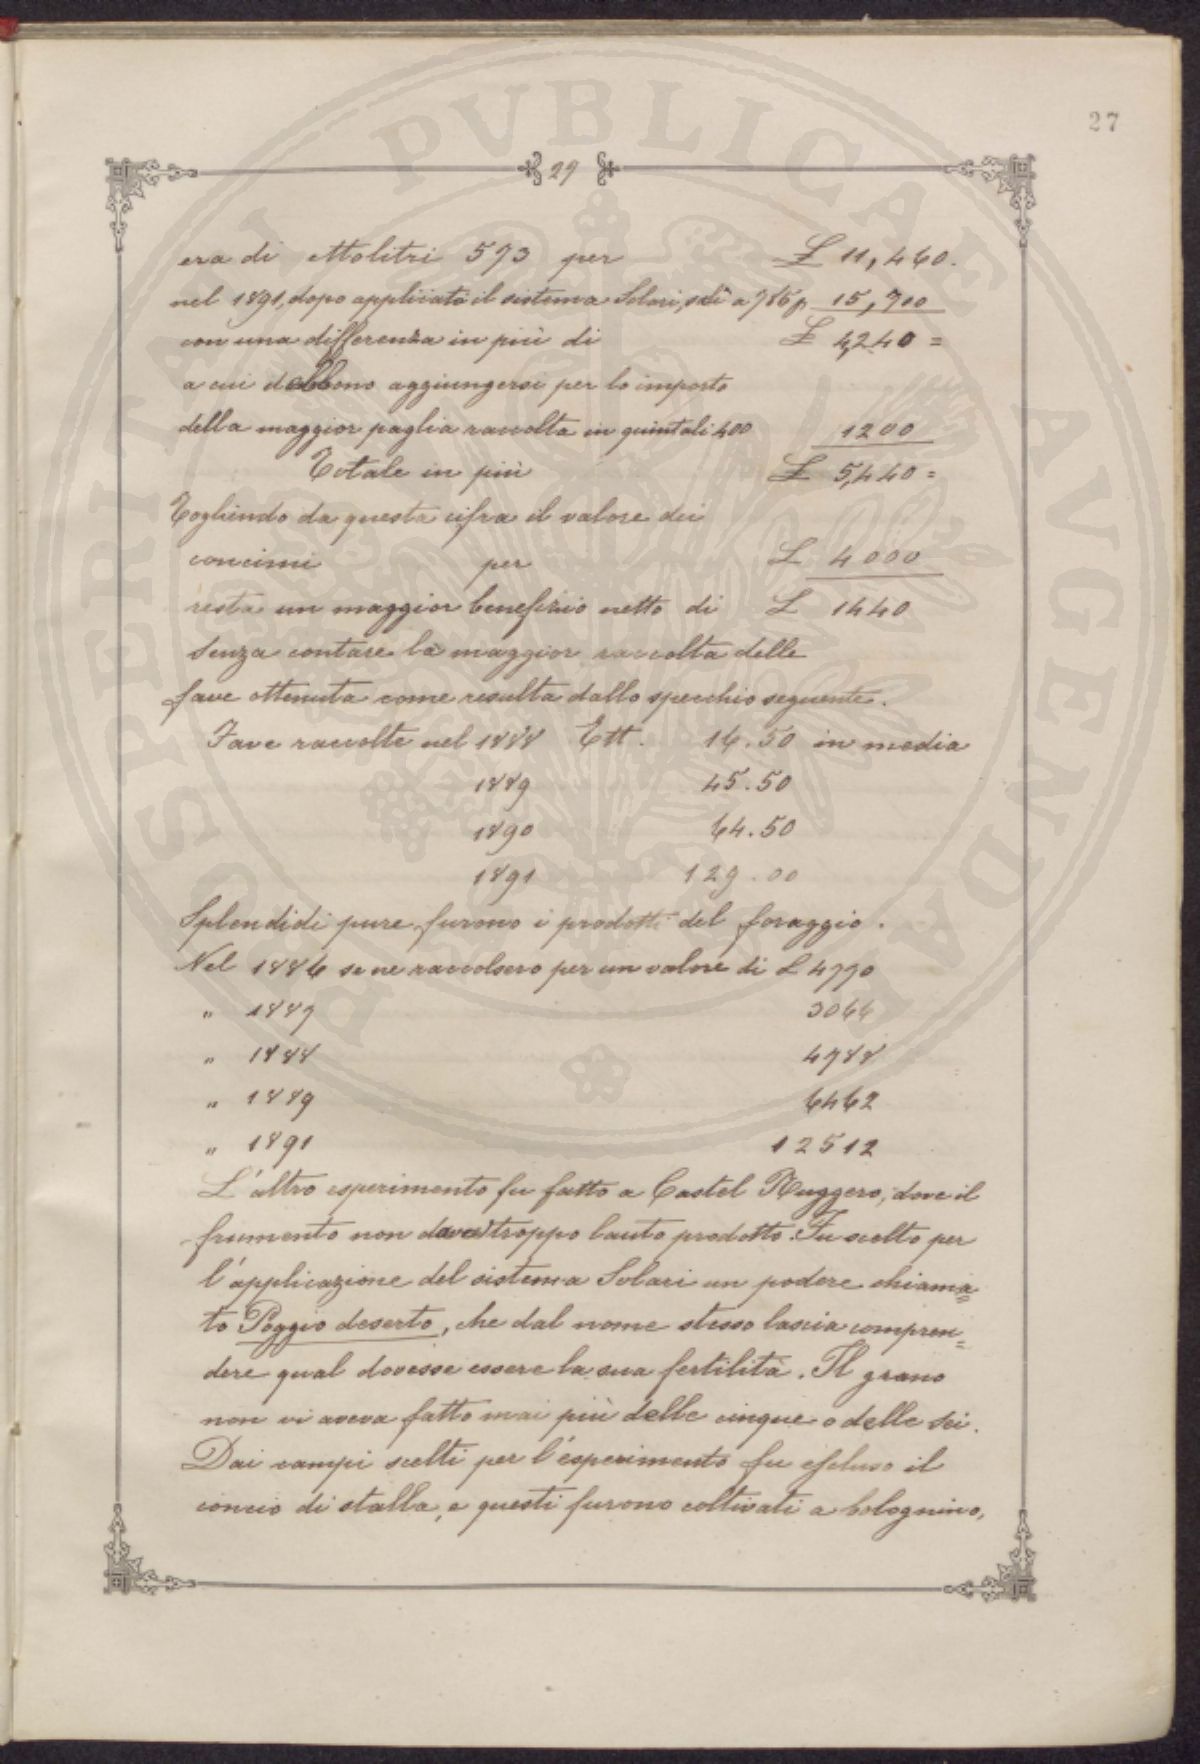 PROSPERITATI PVBLICAE AVGENDAE
27
29
era di ettolitri 573 per £ 11,460.
nel 1891, dopo applicato il sistema Solari, salì a 785 p. 15,700
con una differenza in più di £ 4,240 =
a cui debbono aggiungersi per lo importo
della maggior paglia raccolta in quintali 400 1200
Totale in più £ 5,440 =
Togliendo da questa cifra il valore dei
concimi per £ 4000
resta un maggior benefizio netto di £ 1440
senza contare la maggior raccolta delle
fave ottenuta come resulta dallo specchio seguente.
Fave raccolte nel 1888 Ett. 14.50 in media
1889 45.50
1890 64.50
1891 129.00
Splendidi pure furono i prodotti del foraggio.
Nel 1886 se ne raccolsero per un valore di £ 4770
" 1887 3066
" 1888 4788
" 1889 6462
" 1891 12512
L'altro esperimento fu fatto a Castel Ruggero, dove il
frumento non dava troppo lauto prodotto. Fu scelto per
l'applicazione del sistema Solari un podere chiama=
to Poggio deserto, che dal nome stesso lascia compren=
dere qual dovesse essere la sua fertilità. Il grano
non vi aveva fatto mai più delle cinque o delle sei.
Dai campi scelti per l'esperimento fu escluso il
concio di stalla, e questi furono coltivati a bolognino,